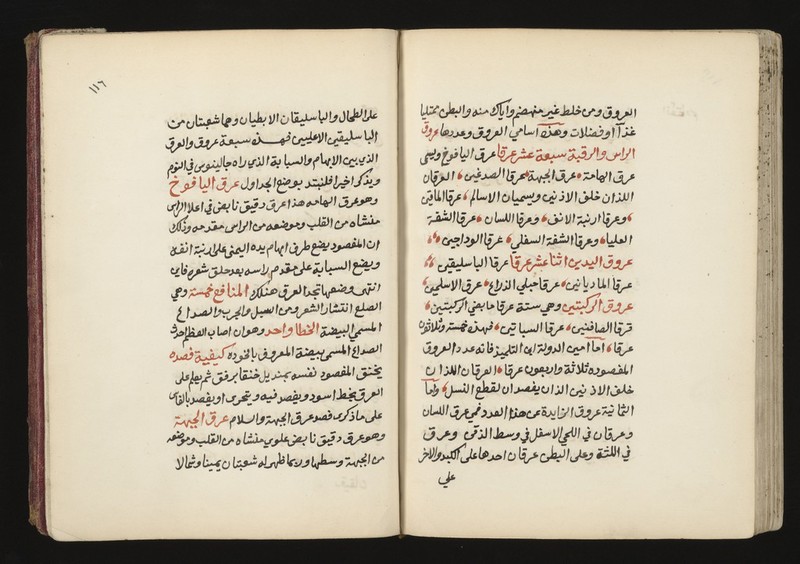 العروق ومن خلط غير منهضم واياك منه والبطن ممتليا
غذآ او فضلات وهذه اسامي العروق وعددها عروق
الراس والرقبة سبعة عشر عرقا عرق اليافوخ ويسمى
عرق الهامة عرق الجبهة عرقا الصدغين العرقان
اللذان خلف الاذنين ويسميان الاسالم عرقا الماقين
وعرقا ارنبة الانف وعرقا اللسان عرقا الشفة
العليا وعرقا الشفة السفلى عرقا الوداجين
عروق اليدين اثنا عشر عرقا عرقا الباسليقين
عرقا الماديانين عرقا حبلي الذراع عرقا الاسلمين
عروق الركبتين وهي ستة عرقا مابضي الركبتين
عرقا الصافنين عرقا السباتين فهذه خمسة وثلاثون
عرقا اما امين الدولة ابن التلميذ فانه عدد العروق
المقصوده ثلاثة واربعون عرقا العرقان اللذان
خلف الاذنين الذان يفصدان لقطع النسل واما
الثمانية عروق الزايدة عن هذا العدد فهي عرق اللسان
وعرقان في اللحي الاسفل في وسط الذقن وعرق
في اللثة وعلى البطن عرقان احدها على الكبد والاخر
علي
١١٦
على الطحال والباسليقان الابطيان وهما شعبتان من
الباسليقين الاعليين فهذه سبعة عروق والعرق
الذي بين الابهام والسبابة الذي راه جالينوس في النوم
ويذكر اخيرا فلنبتد بوضع الجداول عرق اليافوخ
وهو عرق الهامه هذا عرق دقيق نابض في اعلا الراس
منشاه من القلب وموضعه من الراس مقدمه وذلك
ان المقصود يضع طرف ابهام يده اليمنى على ارنبة انفه
ويضع السبابة على مقدم راسه بعد حلق شعره فاين
انتهى وضعها تجد العرق هناك المنافع خمسة وهي
الصلع انتشار الشعر ومن السبل والجرب والصداع
المسمى البيضة الخطا واحد وهو ان اصاب العظم احدث
الصداع المسمى بيضة المعروف بالخوده كيفية فصده
يخنق المقصود نفسه بمنديل خنقا برفق ثم يعلم على
العرق بخط اسود ويفصد فيه ويتحرى او يفصد بالفاس
على ما ذكر في فصد عرق الجبهة والسلام عرق الجبهة
وهو عرق دقيق نابض علوي منشاه من القلب وموضعه
من الجبهة وسطها وربما ظهر له شعبتان يمينا وشمالا